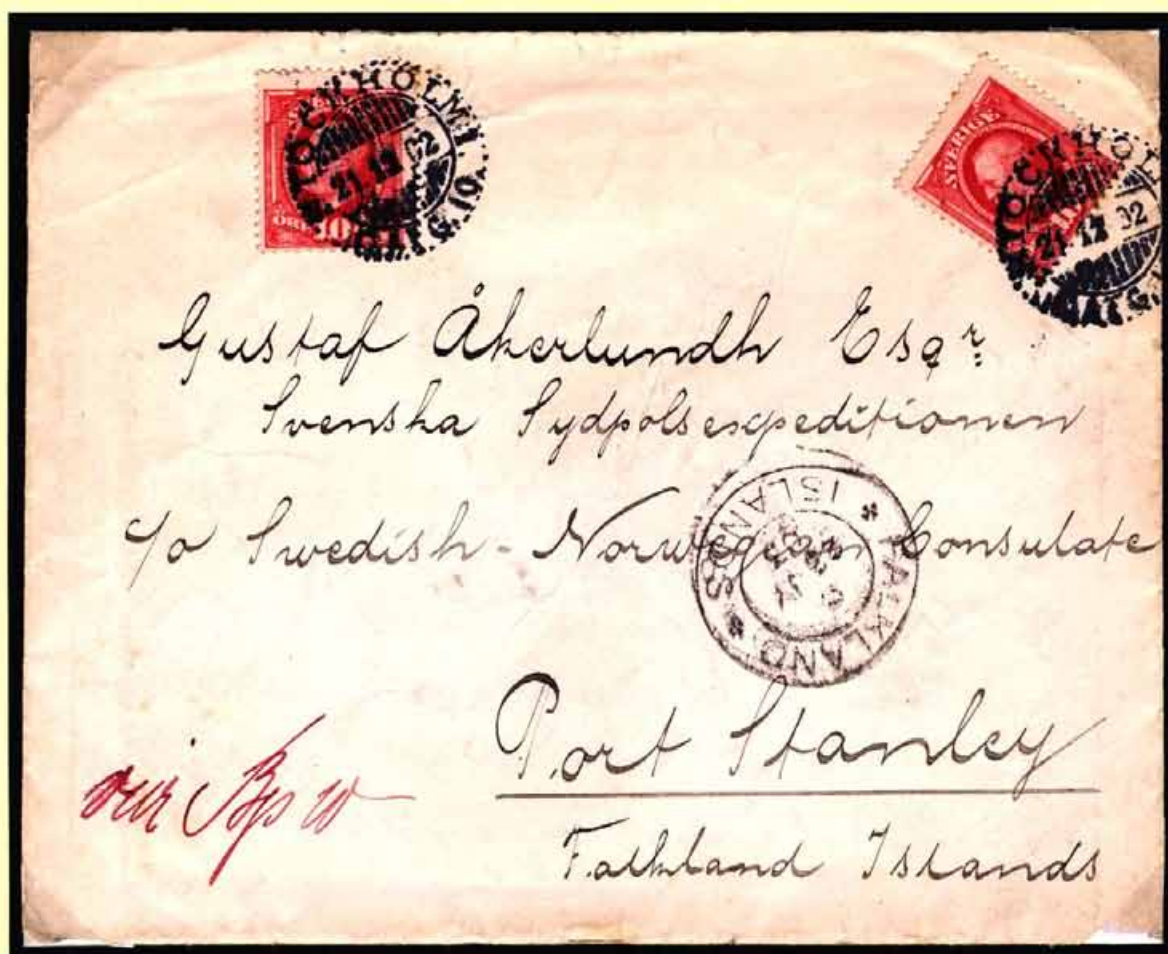 STOCKHOLM 1.
21.12.02
ÖRE 10
SVERIGE
STOCKHOLM
21.12.02
Gustaf Åkerlundh Esqr.
Svenska Sydpolsexpeditionen
c/o Swedish-Norwegian Consulate
FALKLAND * ISLANDS *
Port Stanley
Falkland Islands